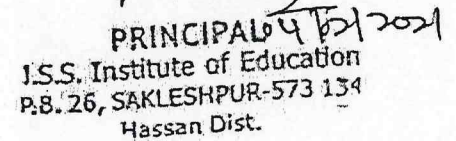 PRINCIPAL
J.S.S. Institute of Education
P.B. 26, SAKLESHPUR-573 134
Hassan Dist.